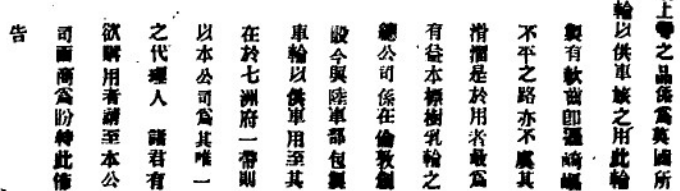 上等之品係爲英國所
輪以供車族之用此輪
製有軟茲卽遇崎嶇
不平之路亦不虞其
滑溜是於用者最爲
有益本標樹乳輪之
總公司係在倫敦創
設今與陸車部包製
車輪以供車用至其
在於七洲府一帶則
以本公司爲其唯一
之代理人 諸君有
欲購用者請至本公
司面商爲盼特此佈
告